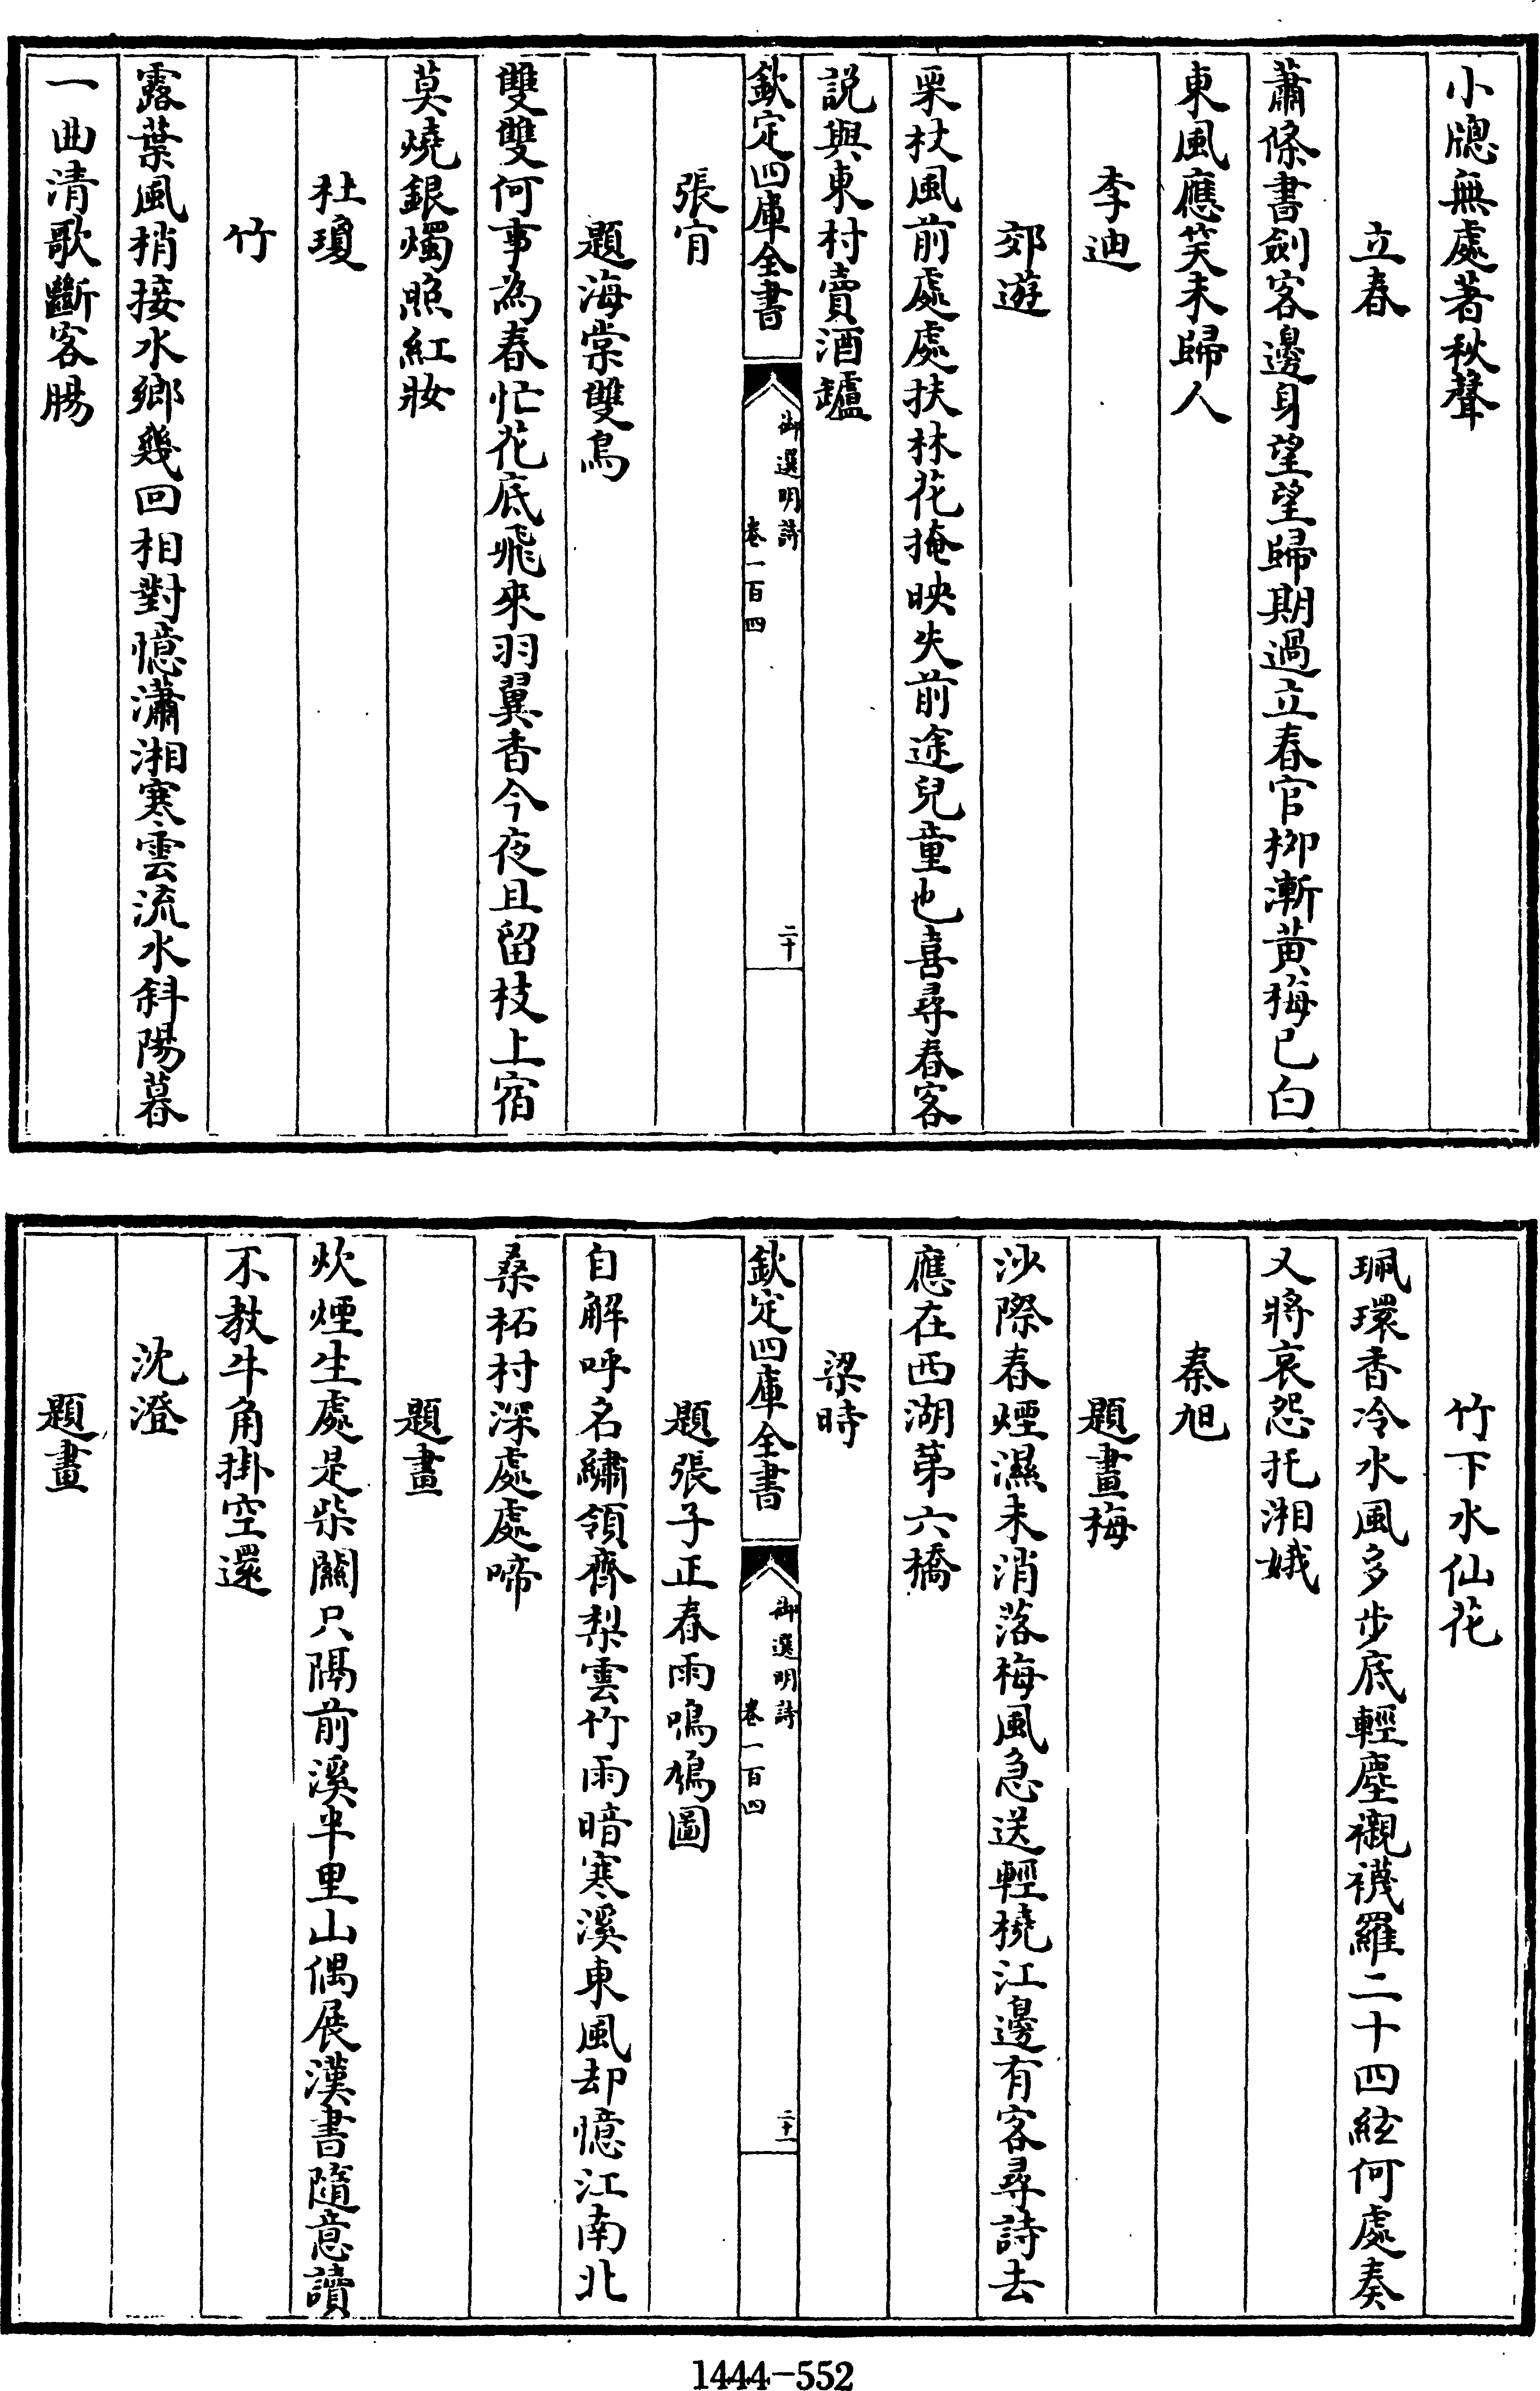 小牕無處著秋聲
立春
蕭條書劍客邊身望望歸期過立春官柳漸黃梅已白
東風應笑未歸人
李迪
郊遊
藜杖風前處處扶林花掩映失前途兒童也喜尋春客
説與東村賣酒罏
欽定四庫全書
御選明詩
卷一百四
二十
張肎
題海棠雙鳥
雙雙何事為春忙花底飛來羽翼香今夜且留枝上宿
莫燒銀燭照紅妝
杜瓊
竹
露葉風梢接水鄉幾回相對憶瀟湘寒雲流水斜陽暮
一曲清歌斷客腸
竹下水仙花
珮環香冷水風多步底輕塵襯襪羅二十四絃何處奏
又將哀怨托湘娥
秦旭
題畫梅
沙際春煙濕未消落梅風急送輕橈江邊有客尋詩去
應在西湖第六橋
梁時
欽定四庫全書
御選明詩
卷一百四
二十一
題張子正春雨鳴鳩圖
自解呼名繡領齊梨雲竹雨暗寒溪東風却憶江南北
桑柘村深處處啼
題畫
炊煙生處是柴關只隔前溪半里山偶展漢書隨意讀
不教牛角掛空還
沈澄
題畫
1444-552